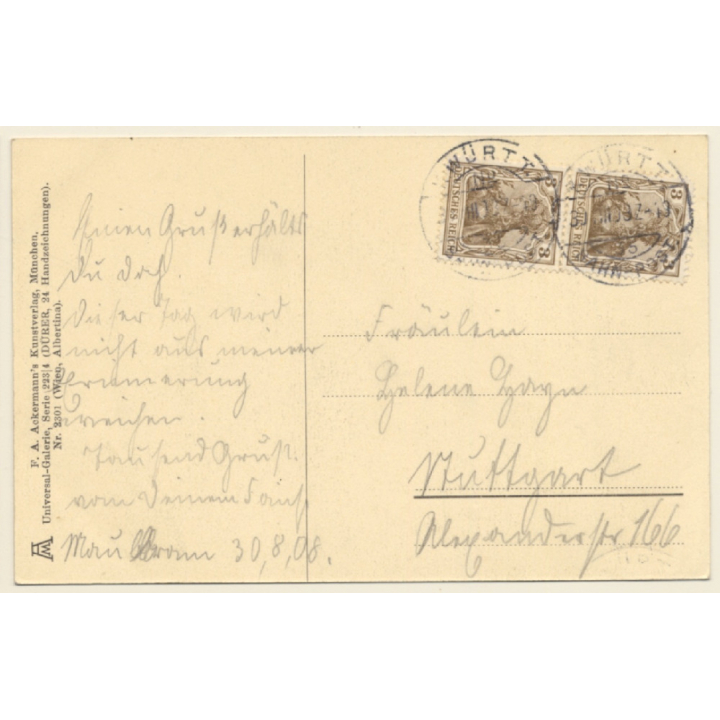 F. A. Ackermann's Kunstverlag, München.
Universal-Galerie, Serie 223|4 (DÜRER, 24 Handzeichnungen).
Nr. 2301 (Wien, Albertina).
Einen Gruß erhälts
du doch.
Dieser Tag wird
nicht aus meiner
Erinnerung
weichen.
Tausend Grüße
vom Deinem
Maulbronn 30,8,08.
WÜRTT
DEUTSCHES REICH
3
3
WÜRTT
DEUTSCHES REICH
3
3
Fräulein
Helene
Stuttgart
Alexanderstr 166